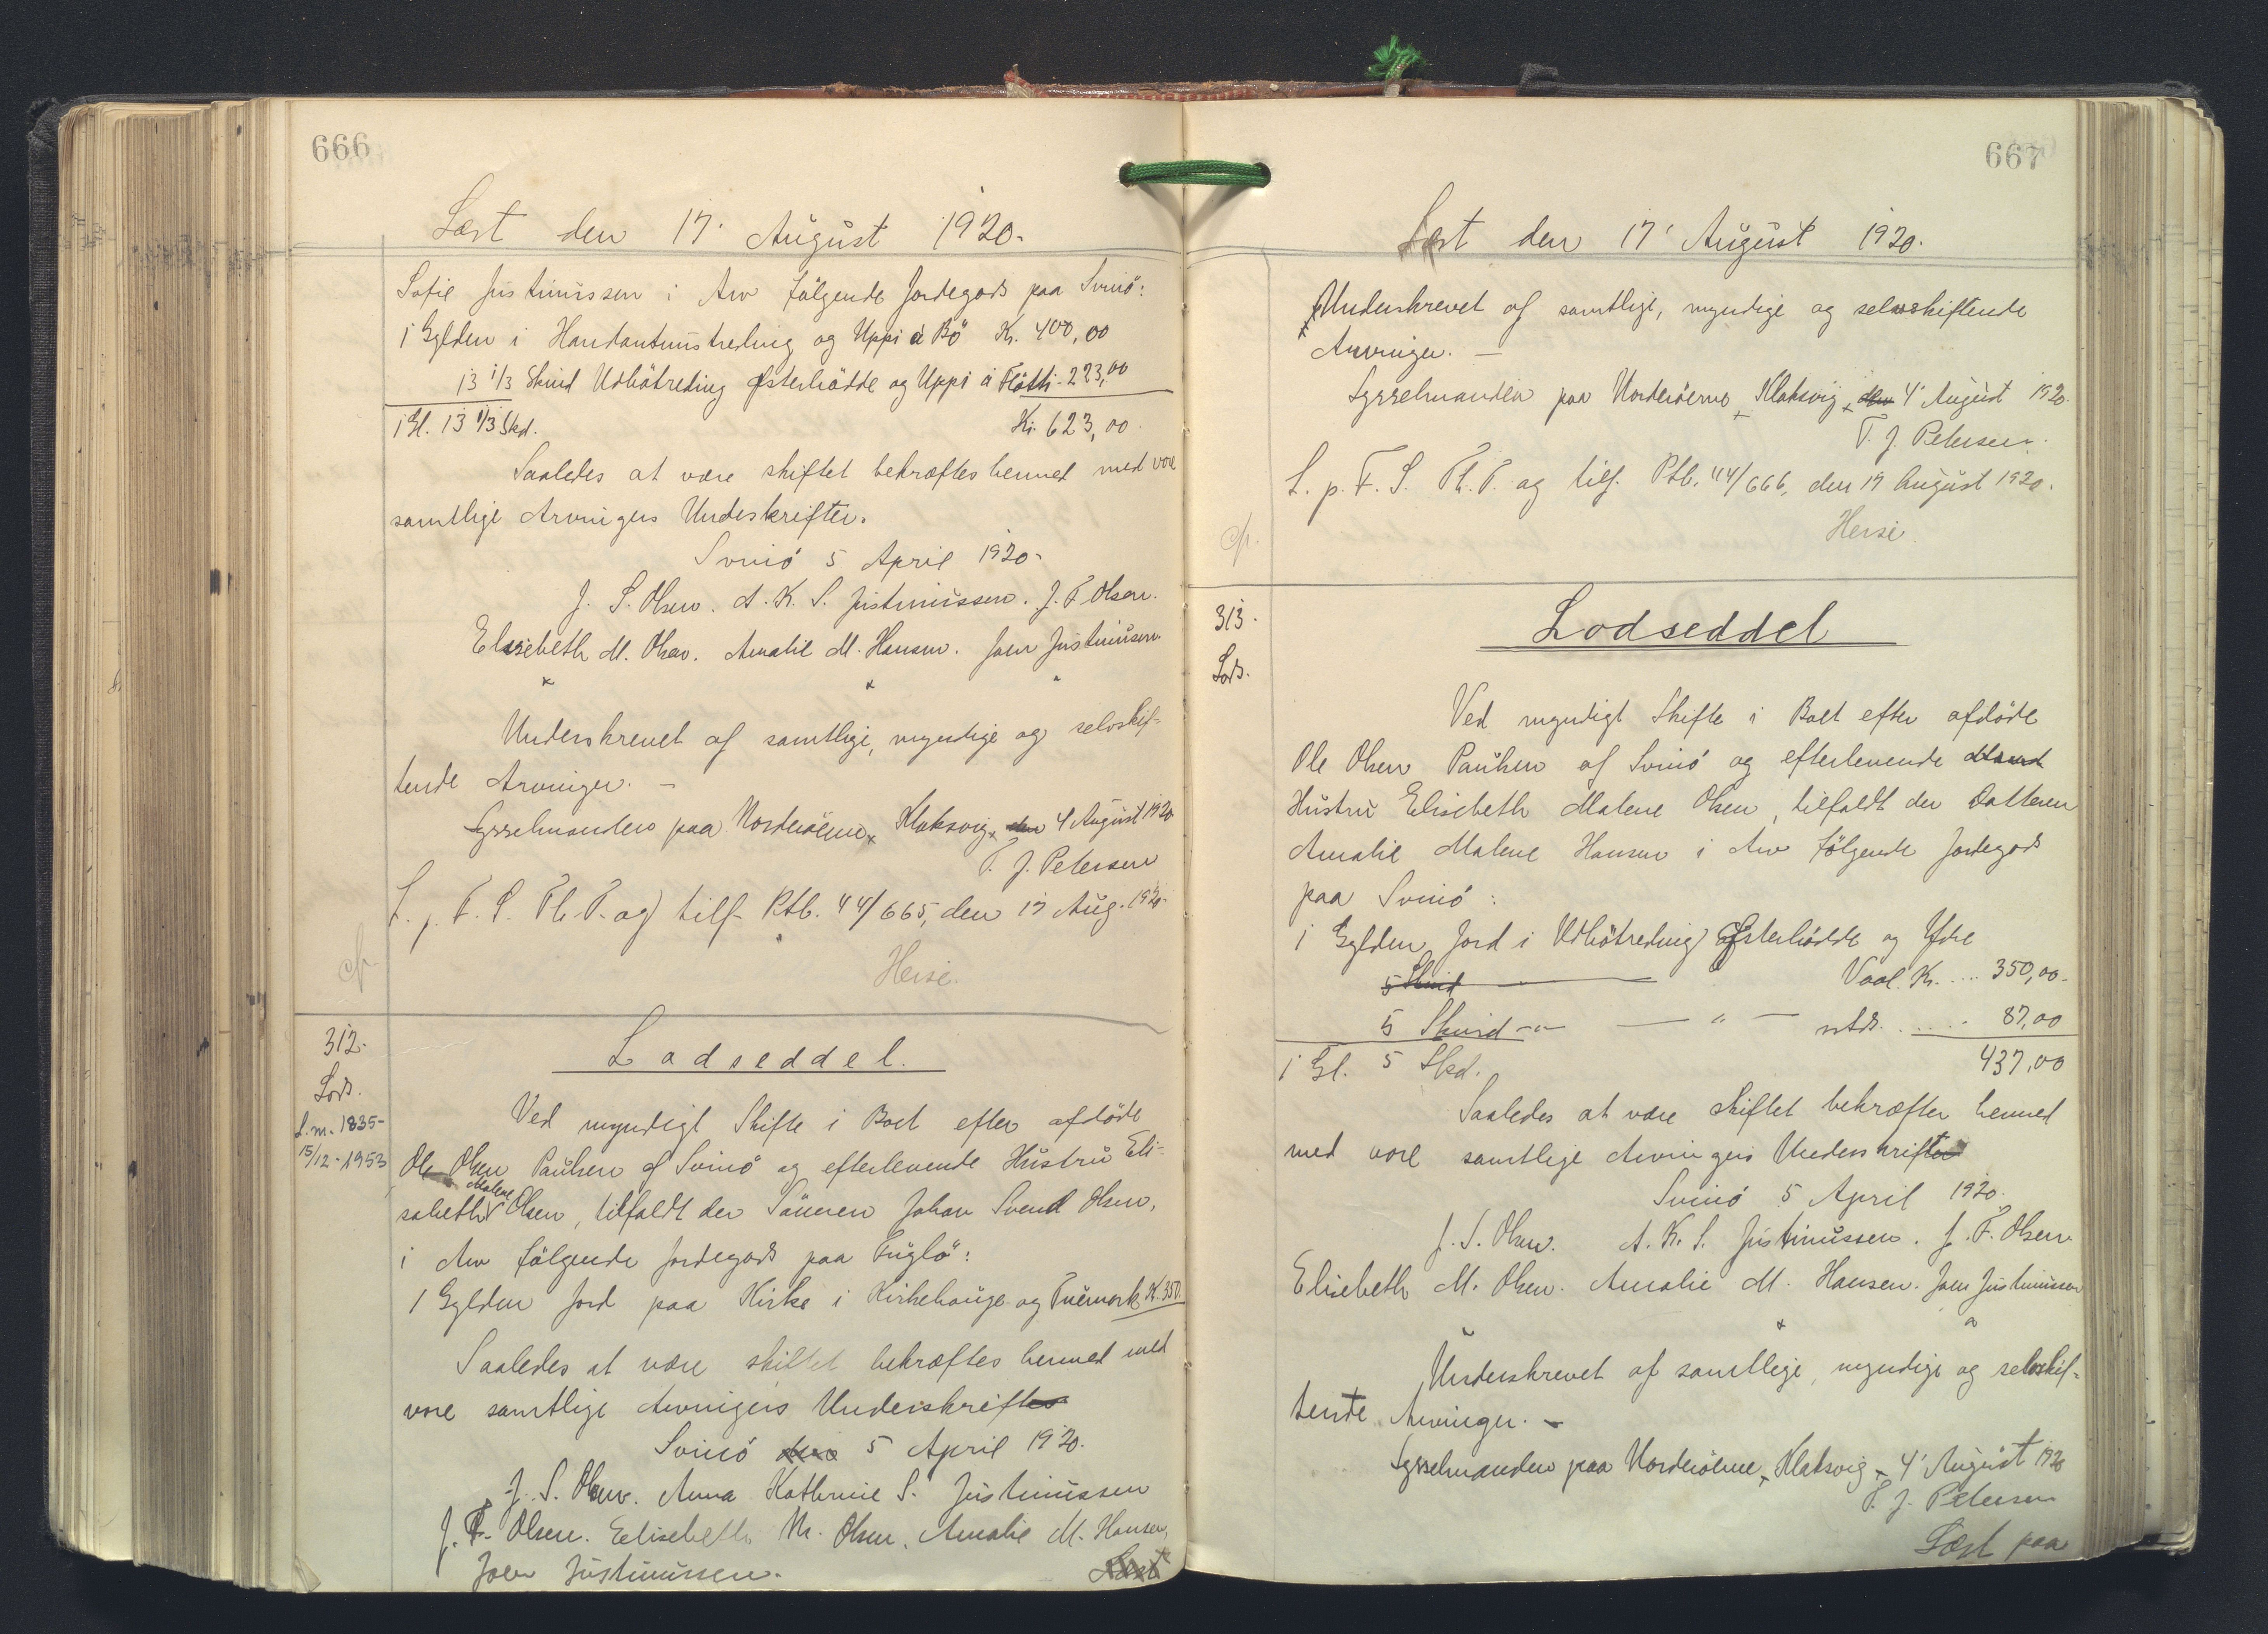 666
Læst den 17' August 1920.
Sofie Justinussen i Arv følgende Jordegods paa Svinö:
1 Gylden i Handantunstreding og Uppi á Bö Kr. 400,00
13 1/3 Skind Udbötreding Østerhødde og Uppi á Fløtti - 223,00
1 Gl. 13 1/3 Skd. Kr. 623,00.
Saaledes at være skiftet bekræftes hermed med vore
samtlige Arvingers Underskrifter.
Svinö 5 April 1920.
J. S. Olsen. A. K. S. Justinussen. J. F. Olsen.
Elisebeth M. Olsen. Amalie M. Hansen. Joen Justinusen.
Underskrevet af samtlige, myndige og selvskif-
tende Arvinger. –
Sysselmanden paa Norderöerne, Klaksvig, den 4 August 1920
T. J. Petersen
L. p. F. S. Th. T. og tilf. Ptb. 44/665, den 17 Aug. 1920
Heise.
cfr.
312.
Lods.
L.m. 1835-
15/12-1953
Lodseddel.
Ved myndigt Skifte i Boet efter afdöde
Ole Olsen Paulsen af Svinö og efterlevende Hustru Eli-
sabeth Malene Olsen, tilfaldt der Sönnen Johan Svend Olsen,
i Arv følgende Jordegods paa Fuglö:
1 Gylden Jord paa Kirke i Kirkehauge og Tuemark K. 350
Saaledes at være skiftet bekræftes hermed med
vore samtlige Arvingers Underskrifter
Svinö den 5 April 1920.
J. S. Olsen. Anna Kathrine S. Justinussen
J. F. Olsen. Elisebeth M. Olsen, Amalie M. Hansen,
Joen Justinussen.
Læst
667
Læst den 17' August 1920.
Underskrevet af samtlige, myndige og selvskiftende
Arvinger. –
Sysselmanden paa Norderöerne, Klaksvig, den 4' August 1920.
T. J. Petersen.
L. p. F. S. Th. T. og tilf. Ptb. 44/666, den 17 August 1920.
Heise.
cfr.
313.
Lods.
Lodseddel
Ved myndigt Skifte i Boet efter afdöde
Ole Olsen Paulsen af Svinö og efterlevende Mand
Hustru Elisebeth Malene Olsen, tilfaldt der Datteren
Amalie Malene Hansen i Arv følgende Jordegods
paa Svinö:
1 Gylden Jord i Udbötreding Østerhödde og Ydre
5 Skind Vaal. Kr. ... 350,00.
5 Skind -"- — " — sstds. ..... 87,00
1 Gl. 5 Skd. 437,00
Saaledes at være skiftet bekræfter hermed
med vore samtlige Arvingers Underskrifter
Svinö 5 April 1920.
J. S. Olsen. A. K. S. Justinussen. J. F. Olsen.
Elisebeth M. Olsen. Amalie M. Hansen. Joen Justinussen
Underskrevet af samtlige, myndige og selvskif-
tende Arvinger. –
Sysselmanden paa Norderöerne, Klaksvig, 4' August 1920
T. J. Petersen
Læst paa